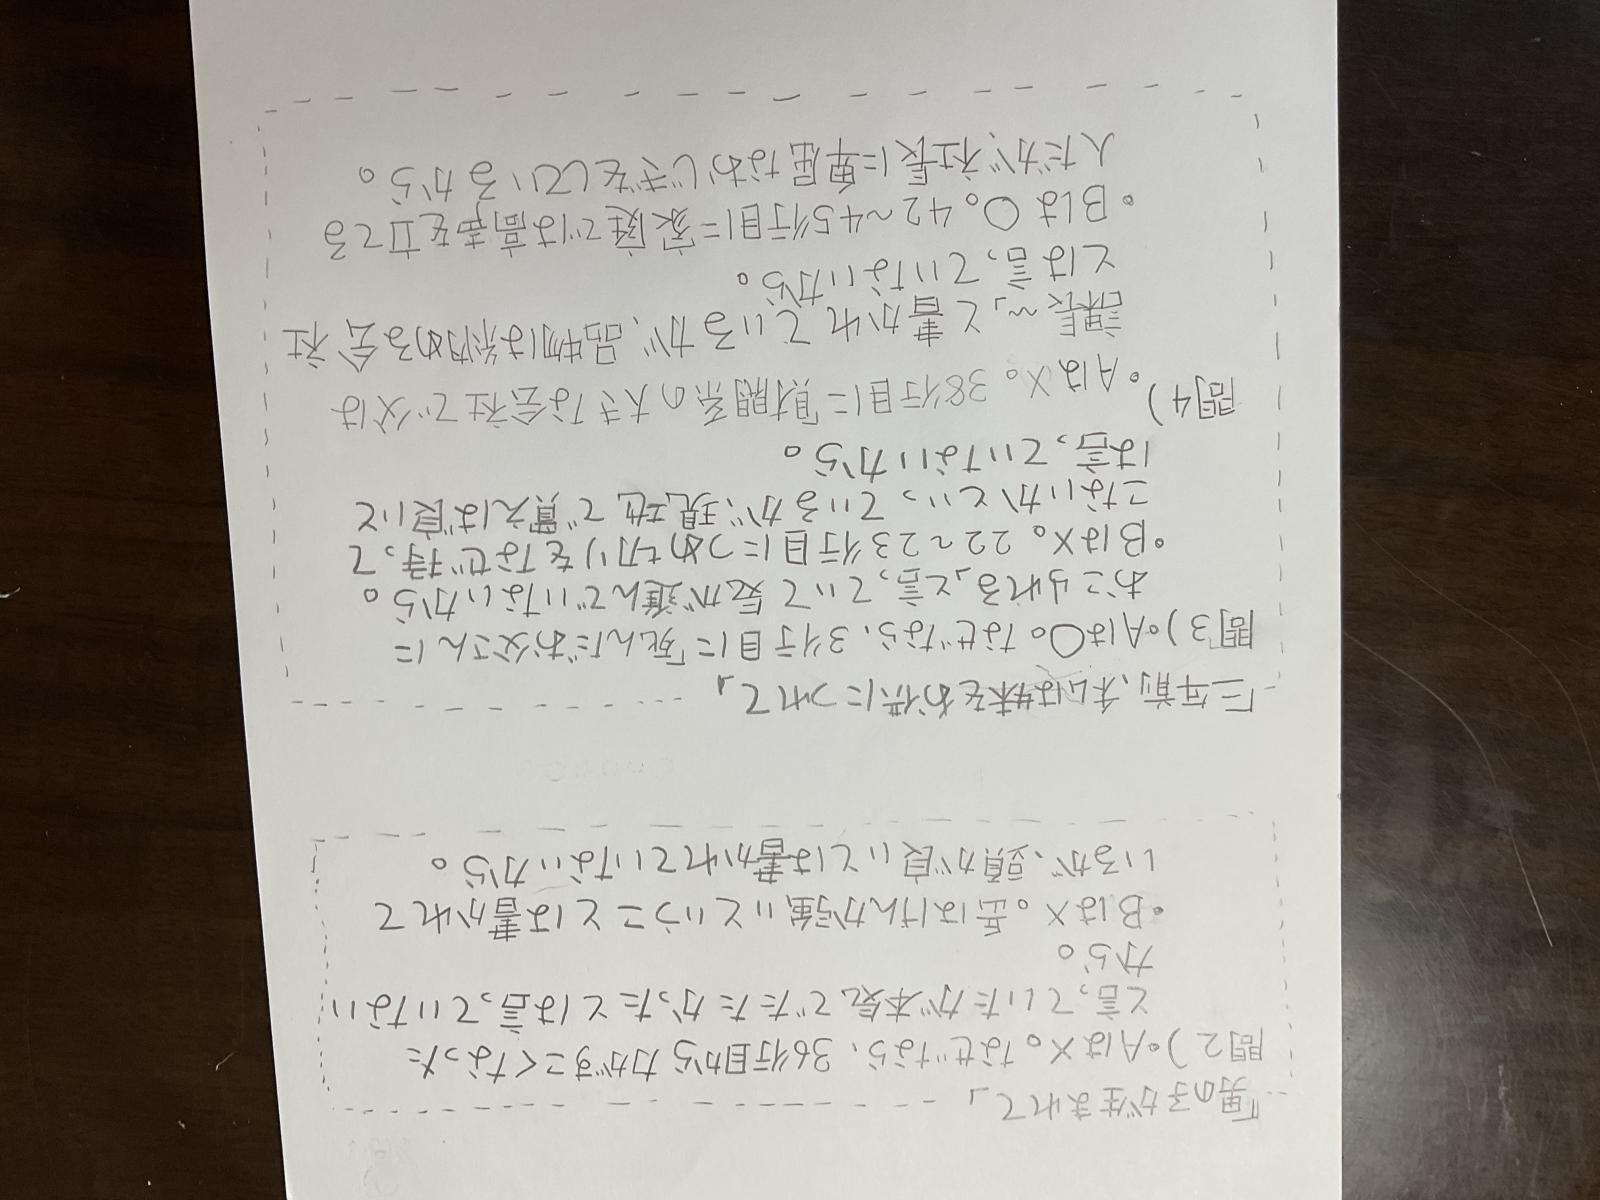 「男の子が生まれて」
問2)・AはX。なぜなら、36行目から力がすごくなった
と言っていたが本気でたたかったとは言っていない
から。
・BはX。岳はけんか強いということは書かれて
いるが、頭が良いとは書かれていないから。
「三年前、私は妹をお供につれて」
問3)・Aは〇。なぜなら、31行目に「死んだお父さんに
おこられる」と言っていて気が進んでいないから。
・BはX。22～23行目につめ切りをなぜ持って
こないかといっているが、現地で買えば良いと
は言っていないから。
問4)・AはX。38行目に「財閥系の大きな会社で父は
課長～」と書かれているが、品物は納める会社
とは言っていないから。
・Bは〇。42～45行目に家庭では高声を立てる
人だが、社長に卑屈なおじぎをしているから。